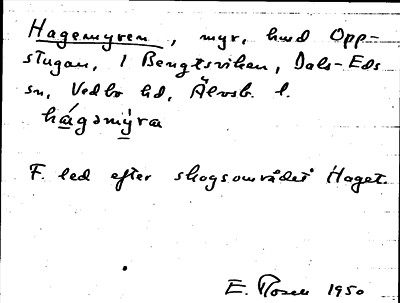 Hagemyren, myr, hmd Opp-
stugan, i Bengtsviken, Dals-Eds
sn, Vedbo hd, Älvsb. l.
hágamýra
F. led efter skogsområdet Haget.
E. Rosell 1950